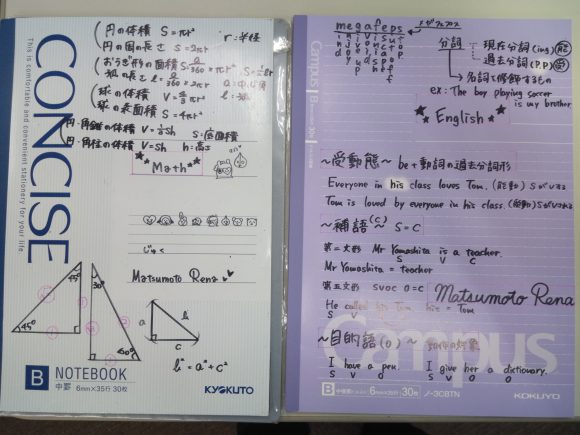 円の体積 S=πr² r:半径
円の周の長さ S=2πr
おうぎ形の面積 S=a/360×πr²
弧の長さ l=a/360×2πr
球の体積 V=4/3πr³
球の表面積 S=4πr²
円・角錐の体積 V=1/3Sh S:底面積
円・角柱の体積 V=Sh h:高さ
★Math★
CONCISE
This is comfortable and convenient stationery for your life
じゅく
Matsumoto Rena
45°
45°
30°
60°
a
b
c
b²=a²+c²
B NOTEBOOK
中罫 6mm×35行 30枚
KYOKUTO
megafeps
分詞
現在分詞(ing)
過去分詞(P.P)
名詞を修飾するもの
ex: The boy playing soccer
is my brother
★English★
Campus
～受動態～ be+動詞の過去分詞形
Everyone in his class loves Tom.
Tom is loved by everyone in his class.
～補語(C)～ S=C
第二文形 Mr Yamashita is a teacher.
S V C
Mr Yamashita = teacher
第五文形 SVOC O=C
Matsumoto Rena
He called his Tom his = Tom
S V
～目的語(O)～ 動作の対象
I have a pen. I give her a dictionary.
S V O S V O O
Campus
B 中横罫 6mm×35行 30枚
ノ-3CBTN
KOKUYO